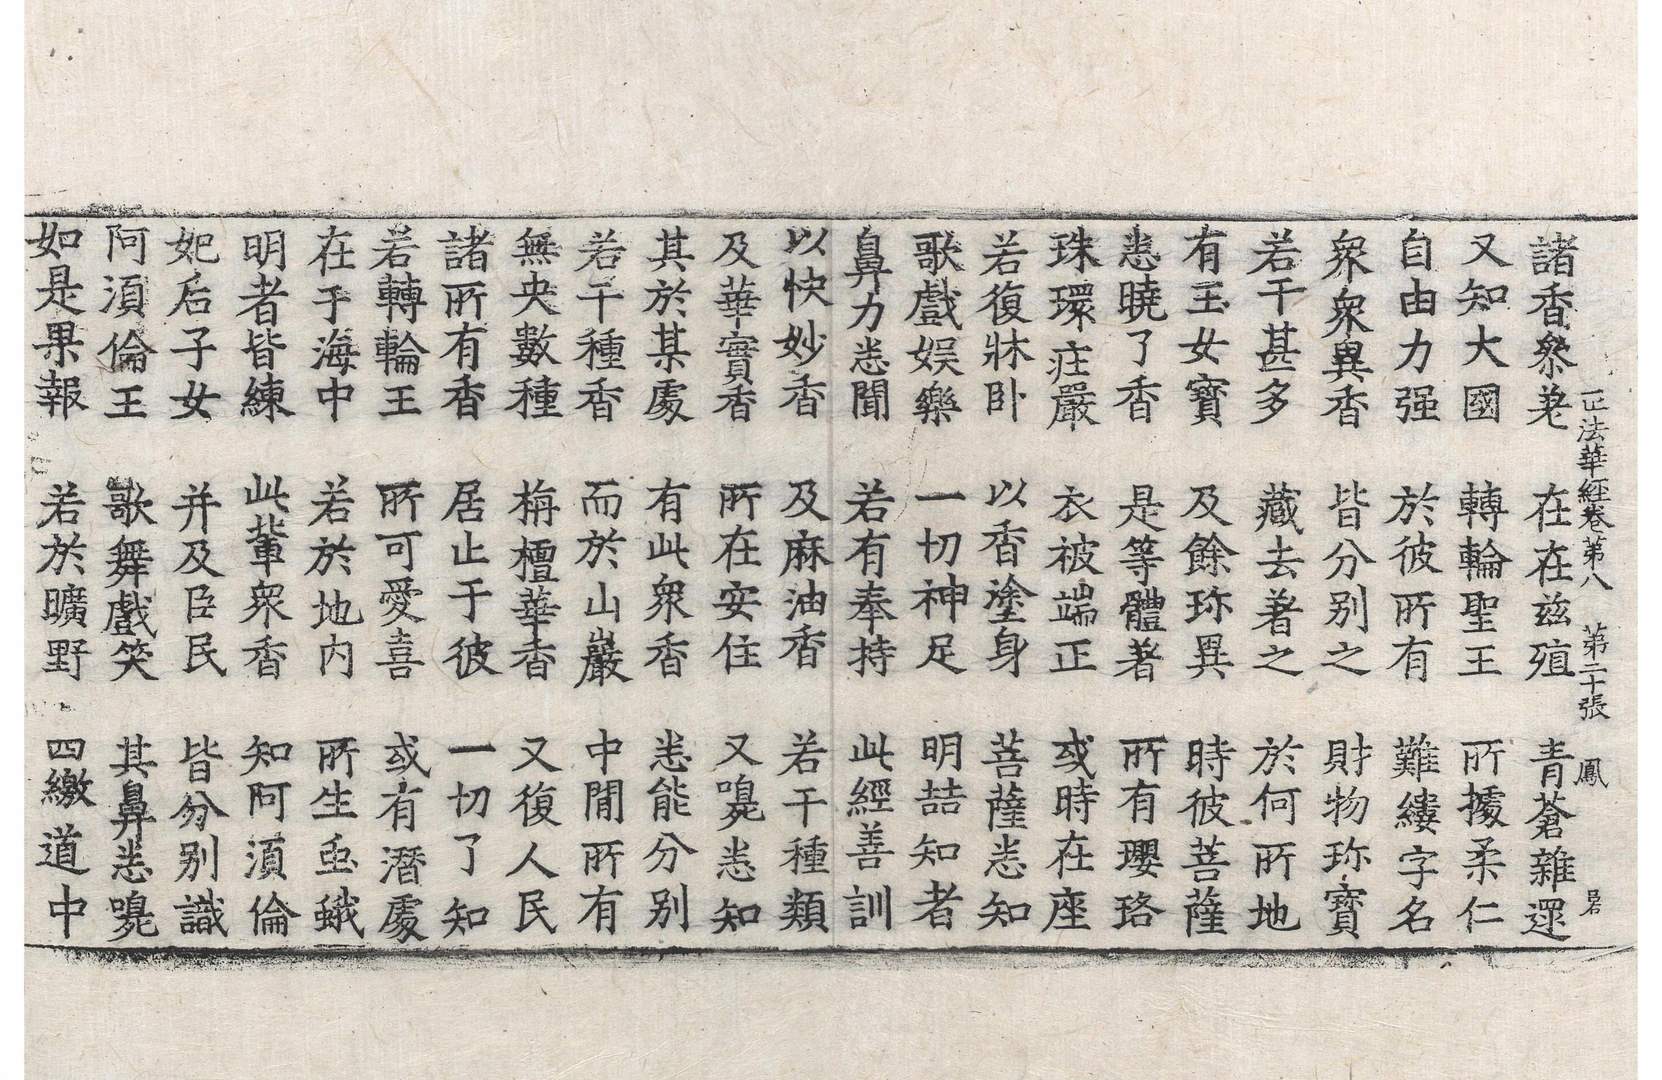 正法華經卷第八 第二十張 鳳 㽛
諸香參差 在在兹殖 青蒼雜遝
又知大國 轉輪聖王 所據柔仁
自由力强 於彼所有 難縷字名
衆衆異香 皆分别之 財物珎寶
若干甚多 藏去著之 於何所地
有玉女寶 及餘珎異 時彼菩薩
悉曉了香 是等體著 所有瓔珞
珠環疘嚴 衣被端正 或時在座
若復牀卧 以香塗身 菩薩悉知
歌戲娛樂 一切神足 明喆知者
鼻力悉聞 若有奉持 此經善訓
以快妙香 及麻油香 若干種類
及華實香 所在安住 又嗅悉知
其於某處 有此衆香 悉能分别
若干種香 而於山巖 中閒所有
無央數種 栴檀華香 又復人民
諸所有香 居止于彼 一切了知
若轉輪王 所可愛喜 或有潛處
在于海中 若於地内 所生䖝蛾
明者皆練 此輩衆香 知阿湏倫
妃后子女 并及臣民 皆分别識
阿湏倫王 歌舞戲笑 其鼻悉嗅
如是果報 若於曠野 四徼道中